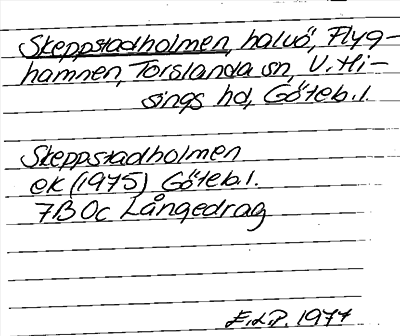 Skeppstadholmen, halvö, Flyg-
hamnen, Torslanda sn, V. Hi-
sings hd, Göteb. l.
Skeppstadholmen
ek (1975) Göteb. l.
7B 0c Långedrag
1977